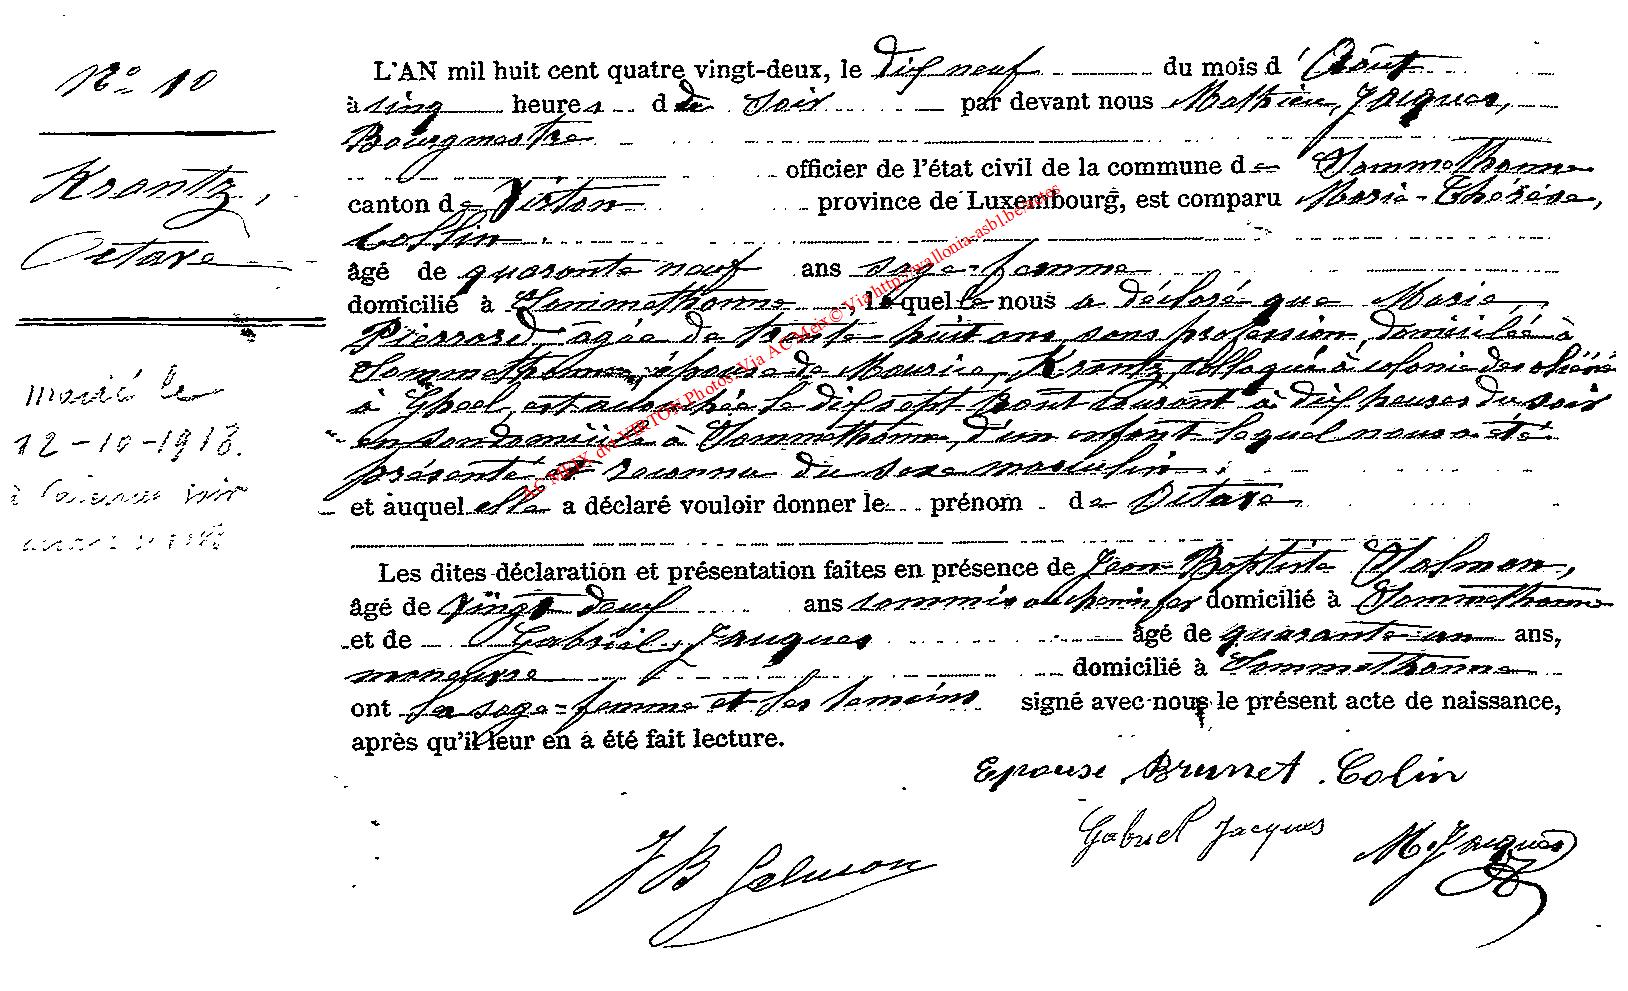 No 10
Krantz,
Octave
marié le
12-10-1918.
à
L'AN mil huit cent quatre vingt-deux, le dix neuf du mois d'Août
à cinq heures d du soir par devant nous Mathieu, Jacques,
Bourgmestre
officier de l'état civil de la commune de Sommethonne
canton de Virton province de Luxembourg, est comparu Marie-Thérèse,
Collin.
âgé de quarante neuf ans sage-femme
domicilié à Sommethonne, lequelle nous a déclaré que Marie
Pierrard, âgée de trente huit ans, sans profession, domiciliée à
Sommethonne, épouse de Maurice, Krantz, colloqué à colonie des aliénés
à Gheel, est accouchée le dix sept Août courant à dix heures du soir
en son domicile à Sommethonne, d'un enfant lequel nous a été
présenté et reconnu du sexe masculin.
et auquel elle a déclaré vouloir donner le prénom de Octave
Les dites déclaration et présentation faites en présence de Jean-Baptiste Salmon,
âgé de vingt deux ans commis au chemin fer domicilié à Sommethonne
et de Gabriel, Jacques âgé de quarante un ans,
manœuvre domicilié à Sommethonne
ont la sage-femme et les temoins signé avec nous le présent acte de naissance,
après qu'il leur en a été fait lecture.
Epouse Brunet Colin
Gabriel Jacques
M. Jacques
J B Salmon
AC MEIX dvt VIRTON Photos: Via AC Meix © Via http://wallonia-asbl.be/actes